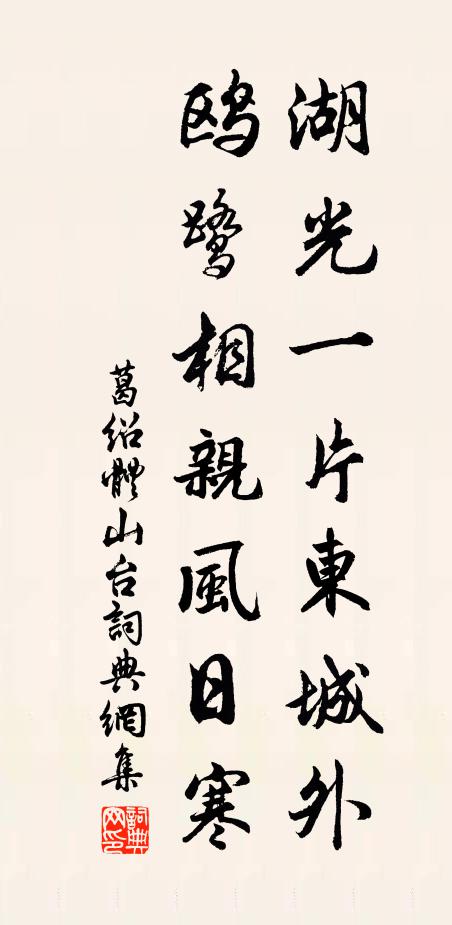 湖光一片東城外
鸥鹭相親風日寒
葛绍體山台詞典網集
詞典网印